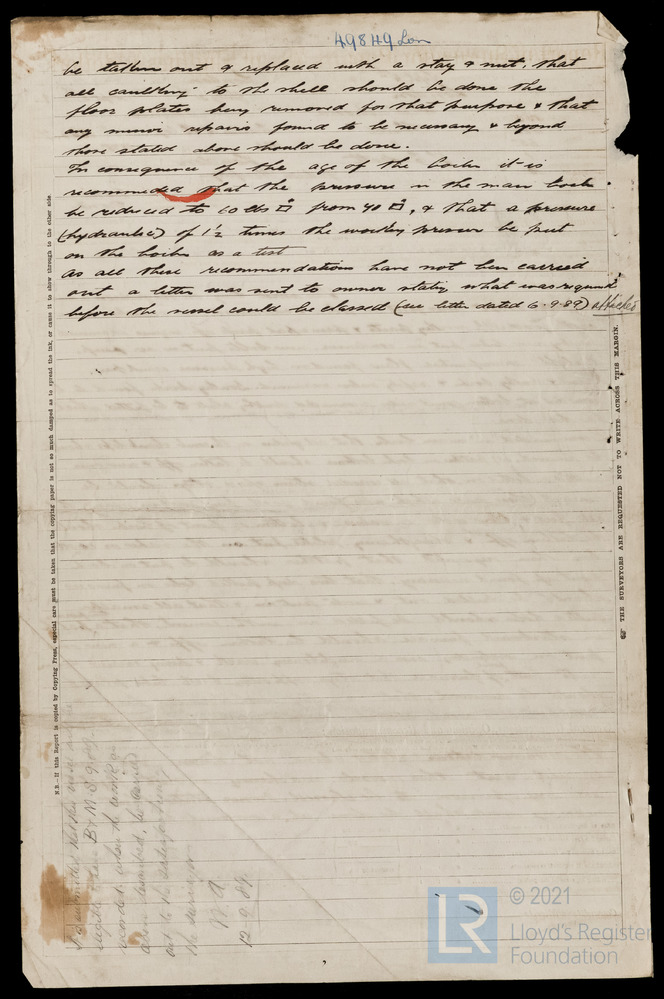 49849 Lon
be taken out & replaced with a stay & nut, that
all caulking to the shell should be done the
floor plates being removed for that purpose & that
any minor repairs found to be necessary & beyond
those stated above should be done.
In consequence of the age of the boiler it is
recommended that the pressure in the main boiler
be reduced to 60 lbs □" from 70 □", & that a pressure
(hydraulic) of 1½ times the working pressure be put
on the boiler as a test
As all these recommendations have not been carried
out a letter was sent to owner stating what was required
before the vessel could be classed (see letter dated 6-9-89) attached
N.B.—If this Report is copied by Copying Press, especial care must be taken that the copying paper is not so much damped as to spread the ink, or cause it to show through to the other side.
THE SURVEYORS ARE REQUESTED NOT TO WRITE ACROSS THIS MARGIN.
It is submitted that this vessel
eligible B & M S 9.89
recorded when the work
above
out to the satisfaction
the surveyor
12.9.89
LR
© 2021
Lloyd's Register
Foundation